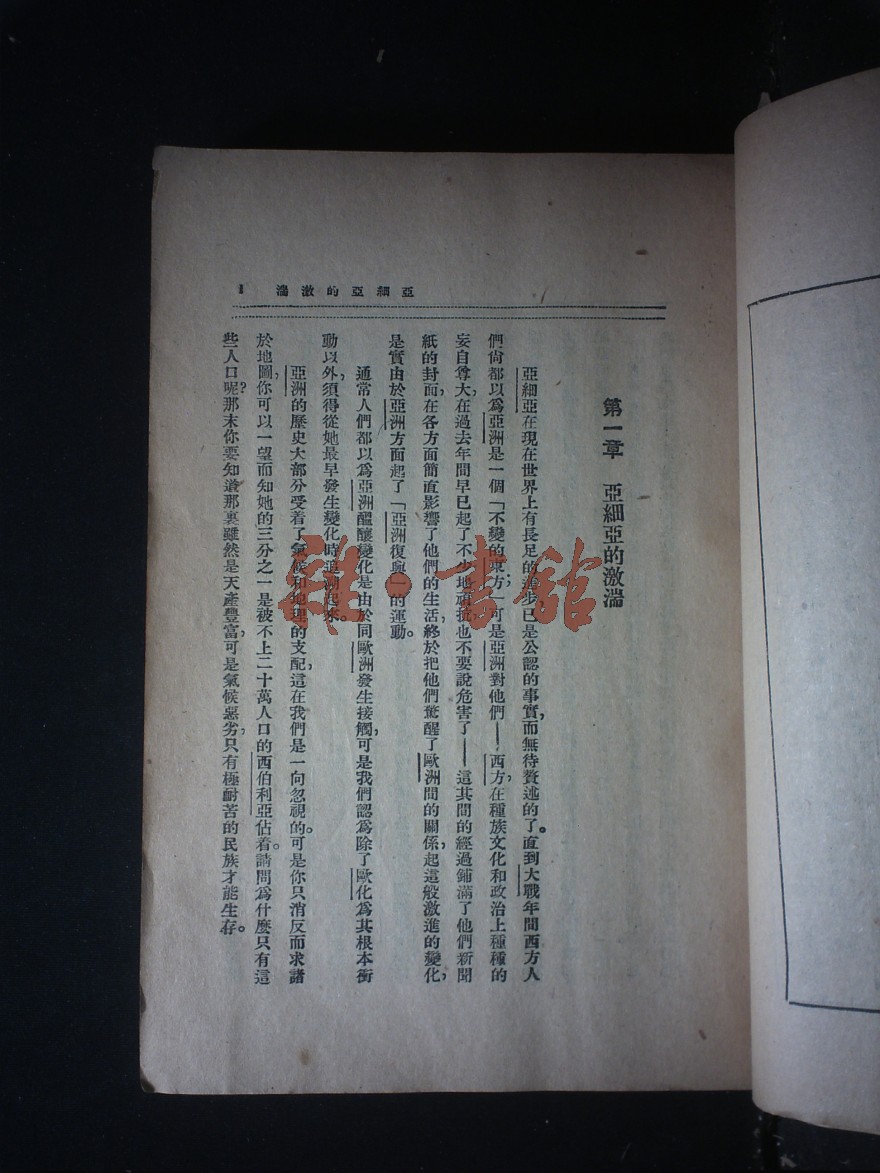 亞細亞的激湍　1
第一章　亞細亞的激湍
亞細亞在現在世界上有長足的進步已是公認的事實，而無待贅述的了。直到大戰年間西方人
們尙都以爲亞洲是一個「不變的東方」；可是亞洲對他們——西方，在種族文化和政治上種種的
妄自尊大，在過去年間早已起了不少地頑抗，也不要說危害了——這其間的經過鋪滿了他們新聞
紙的封面，在各方面簡直影響了他們的生活，終於把他們驚醒了歐洲間的關係，起這般激進的變化，
是實由於亞洲方面起了「亞洲復興」的運動。
通常人們都以爲亞洲醞釀變化是由於同歐洲發生接觸，可是我們認爲除了歐化爲其根本衝
動以外，須得從她最早發生變化時追溯起來。
亞洲的歷史大部分受着了氣候和地理的支配，這在我們是一向忽視的。可是你只消反而求諸
於地圖，你可以一望而知她的三分之一是被不上二十萬人口的西伯利亞佔着。請問爲什麼只有這
些人口呢？那末你要知道那裏雖然是天產豐富，可是氣候惡劣，只有極耐苦的民族才能生存。
雜·書館